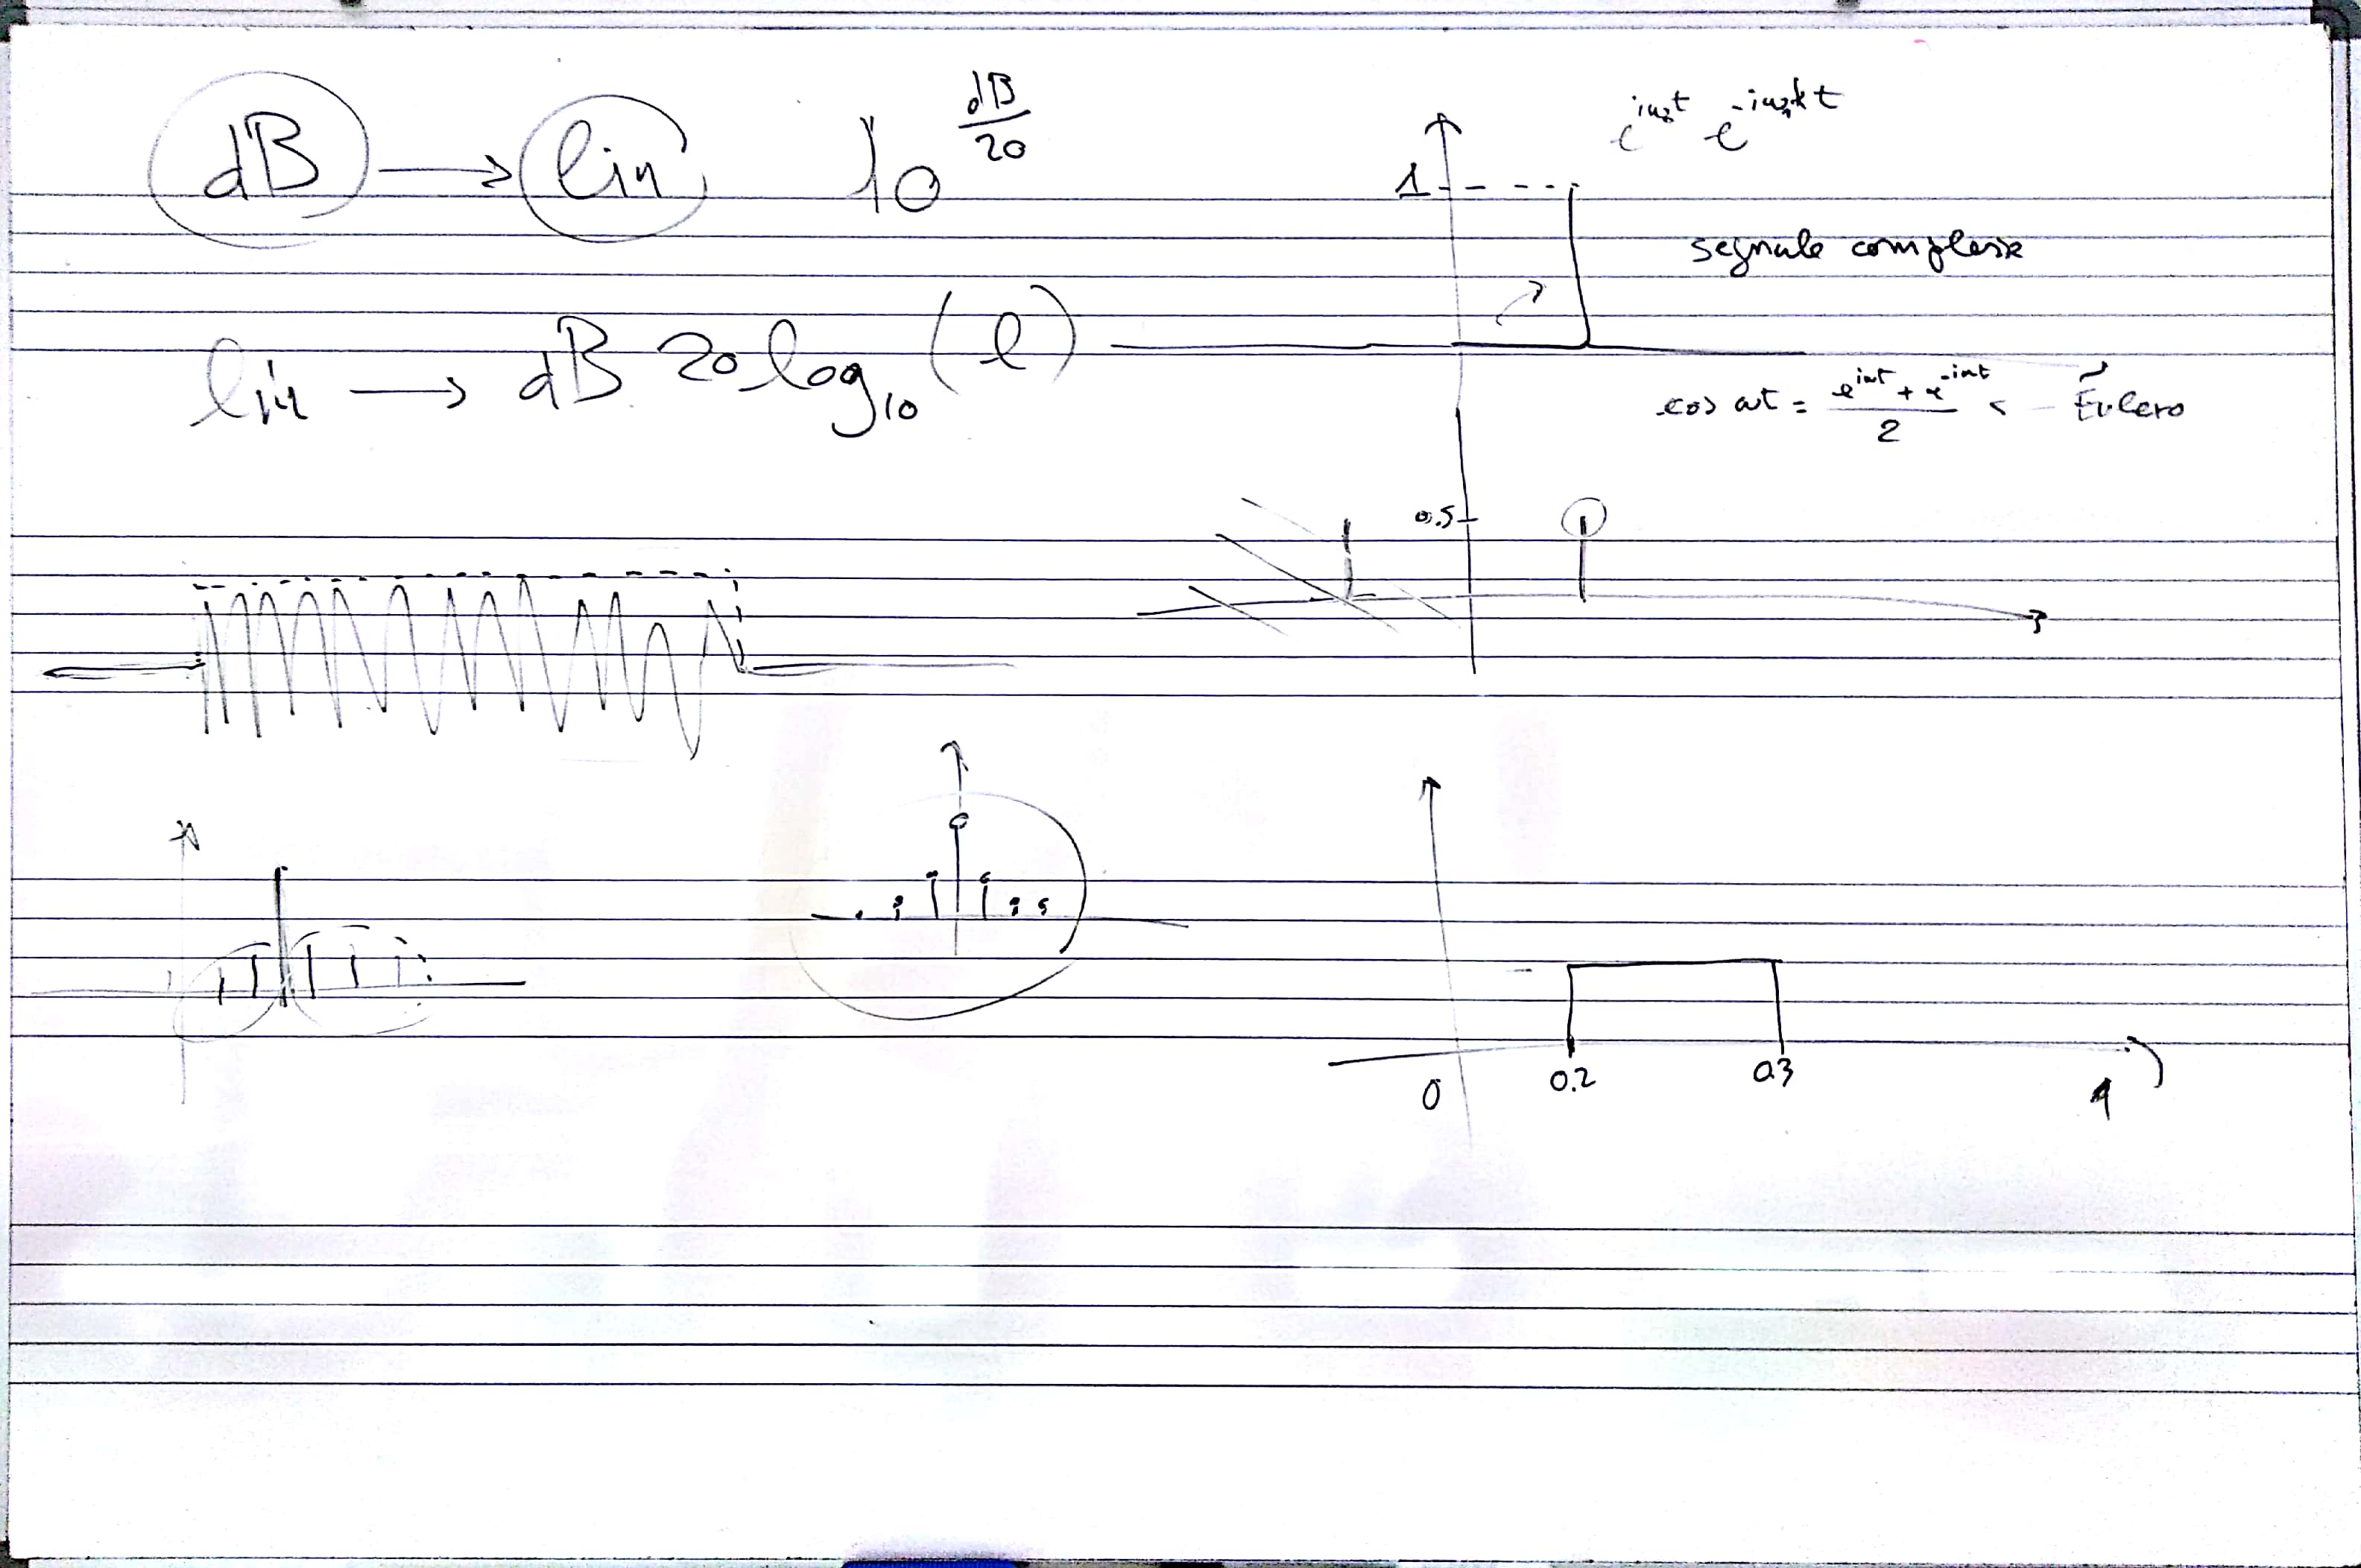 dB → lin 10^(dB/20)
lin → dB 20 log₁₀ (l)
1
segnale complesse
cos ωt = (e^(iωt) + e^(-iωt))/2 < - Eulero
0.5
0 0.2 0.3 1